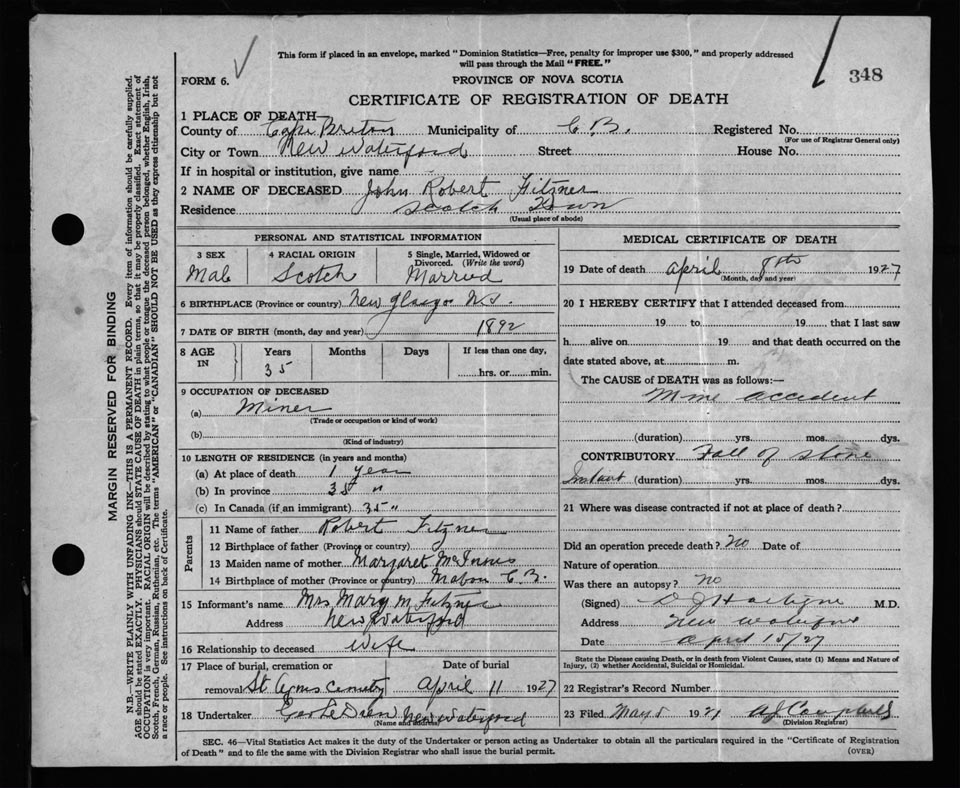 This form if placed in an envelope, marked "Dominion Statistics—Free, penalty for improper use $300," and properly addressed
will pass through the Mail "FREE."
348
FORM 6.
PROVINCE OF NOVA SCOTIA
CERTIFICATE OF REGISTRATION OF DEATH
1 PLACE OF DEATH—
County of Cape Breton Municipality of C. B. Registered No.
(For use of Registrar General only)
City or Town New Waterford Street House No.
If in hospital or institution, give name
2 NAME OF DECEASED John Robert Fitzner
Residence Scotch Town
(Usual place of abode)
PERSONAL AND STATISTICAL INFORMATION
3 SEX 4 RACIAL ORIGIN 5 Single, Married, Widowed or Divorced. (Write the word)
Male Scotch Married
6 BIRTHPLACE (Province or country) New Glasgo N.S.
7 DATE OF BIRTH (month, day and year) 1892
8 AGE IN Years Months Days If less than one day,
35 hrs. or min.
9 OCCUPATION OF DECEASED
(a) Miner
(Trade or occupation or kind of work)
(b)
(Kind of industry)
10 LENGTH OF RESIDENCE (in years and months)
(a) At place of death 1 year
(b) In province 35 "
(c) In Canada (if an immigrant) 35 "
Parents
11 Name of father Robert Fitzner
12 Birthplace of father (Province or country)
13 Maiden name of mother Margaret McInnis
14 Birthplace of mother (Province or country) Mabou C. B.
15 Informant's name Mrs Mary M Fitzner
Address New Waterford
16 Relationship to deceased Wife
17 Place of burial, cremation or Date of burial
removal St cemetry April 11 1927
18 Undertaker New Waterford
(Name and address)
MEDICAL CERTIFICATE OF DEATH
19 Date of death April 8th 1927
(Month, day and year)
20 I HEREBY CERTIFY that I attended deceased from
19 to 19 , that I last saw
h alive on 19 and that death occurred on the
date stated above, at m.
The CAUSE of DEATH was as follows:—
Mine accident
(duration) yrs. mos. dys.
CONTRIBUTORY Fall of stone
Instant (duration) yrs. mos. dys.
21 Where was disease contracted if not at place of death?
Did an operation precede death? No Date of
Nature of operation
Was there an autopsy? no
(Signed) M.D.
Address New Waterford
Date April 15/27
State the Disease causing Death, or in death from Violent Causes, state (1) Means and Nature of
Injury, (2) whether Accidental, Suicidal or Homicidal.
22 Registrar's Record Number
23 Filed May 5 192 AJ Campbell
(Division Registrar)
SEC. 46—Vital Statistics Act makes it the duty of the Undertaker or person acting as Undertaker to obtain all the particulars required in the "Certificate of Registration
of Death" and to file the same with the Division Registrar who shall issue the burial permit.
(OVER)
MARGIN RESERVED FOR BINDING
N.B.—WRITE PLAINLY WITH UNFADING INK—THIS IS A PERMANENT RECORD. Every item of information should be carefully supplied.
AGE should be stated EXACTLY. PHYSICIANS should STATE CAUSE OF DEATH in plain terms, so that it may be properly classified. Exact statement of
OCCUPATION is very important. RACIAL ORIGIN will be described by stating to what people or tongue the deceased person belonged, whether English, Irish,
Scotch, French, German, Russian, Ruthenian, etc. The terms "AMERICAN" or "CANADIAN" SHOULD NOT BE USED as they express citizenship but not
a race or people. See instructions on back of Certificate.